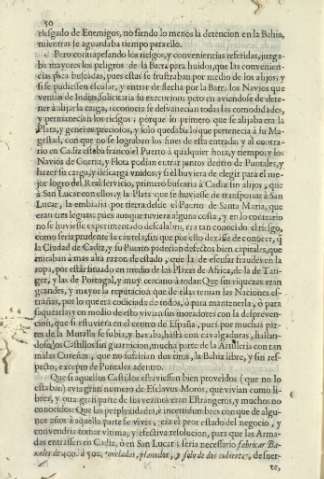 30
riesgado de Enemigos, no siendo lo menos la detencion en la Bahia,
mientras se aguardaba tiempo para ello.
Pero contrapesando los riesgos, y conveniencias referidas, juzga-
ba mayores los peligros de la Barra para huidos, que las convenien-
cias para buscadas, pues estas se frustraban por medio de los alijos; y
si se pudiessen escusar, y entrar de flecha por la Barra los Navios que
venian de Indias, solicitaria su execucion; pero en aviendose de dete-
ner à alijar la carga, reconocia se desvanecian todas las comodidades,
y permanecian los riesgos; porque lo primero que se alijaba era la
Plata, y generos preciosos, y solo quedaba lo que pertenecia à su Ma-
gestad, con que no se lograban los fines de esta entrada; y al contra-
rio en Cadiz estaba franco el Puerto à qualquier hora, y tiempo; y los
Navios de Guerra, y Flota podian entrar juntos dentro de Puntales, y
hazer su carga, y descarga unidos; y si huviera de elegir para el me-
jor logro del Real servicio, primero buscaria à Cadiz sin alijos, que
à San Lucar con ellos; y la Plata que se huviesse de transportar à San
Lucar, la embiaria por tierra desde el Puerto de Santa Maria, que
eran tres leguas; pues aunque tuviera alguna costa, y en lo contrario
no se huviesse experimentado descalabro, era tan conocido el riesgo,
como seria prudente la cautela; sin que por esto dexasse de conocer, q̃
la Ciudad de Cadiz, y su Puerto padecian defectos bien capitales, que
miraban à mas alta razon de estado, que la de escusar fraudes en la
ropa, por estàr situado en medio de las Plazas de Africa, de la de Tan-
ger, y las de Portugal, y muy cercano à todas: Que sus riquezas eran
grandes, y mayor la reputacion que de ellas tenian las Naciones es-
trañas, por lo que era codiciada de todos, ò para mantenerla, ò para
saquearla; y en medio de esto vivian sus moradores con la despreven-
cion, que si estuviera en el centro de España, pues por muchas par-
tes de la Muralla se subia, y baxaba, hasta con cavalgaduras, hallan-
dose los Castillos sin guarnicion, mucha parte de la Artilleria con tan
malas Cureñas, que no sufririan dos tiros, la Bahia libre, y sin res-
pecto, excepto de Puntales adentro.
Que si aquellos Castillos estuviessen bien proveìdos (que no lo
estaban) era gran numero de Esclavos Moros, que vivian como li-
bres, y otra gran parte de sus vezinos eran Estrangeros, y muchos no
conocidos: Que las perplexidades, è incertidumbres con que de algu-
nos años à aquella parte se vivìa, era el peor estado del negocio, y
convendria tomar vltima, y efectiva resolucion, para que las Arma-
das entrassen en Cadiz, ò en San Lucar; seria necessario fabricar Ba-
xeles de 400. à 500. toneladas, planudos, y solo de dos cubiertas, de suer-
te,